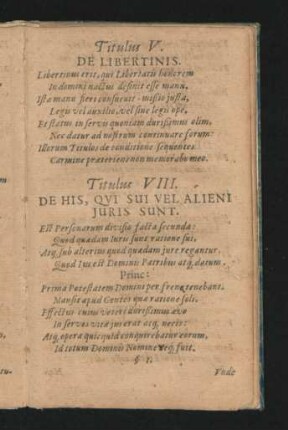 Titulus V.
DE LIBERTINIS.
Libertinus erit, qui Libertatis honorem
In domini nactus desinit esse manu,
Ista manu fieri consuevit - missio justa,
Legis vel auxilio, vel sine legis ope,
Et status in servis quondam durissimus olim,
Nec datur ad nostrum continuare forum:
Illorum Titulos de conditione sequentes
Carmine praeteriens non memorabo meo.
Titulus VIII.
DE HIS, QVI SUI VEL ALIENI
JURIS SUNT.
Est Personarum divisio facta secunda:
Quod quaedam Juris sunt ratione sui,
Atq; sub alterius quod quaedam jure regantur.
Quod Jus est Dominis Patribus atq; datum.
Princ:
Prima Potestatem Domini per
Mansit apud Gentes qua ratione soli,
Effectus cujus veteri durissimus aevo
In servos vitae jus erat atq; necis:
Atq; opera quicquid conquirebatur eorum,
Id totum Domini Nomine fuit.
§ 1.
Unde